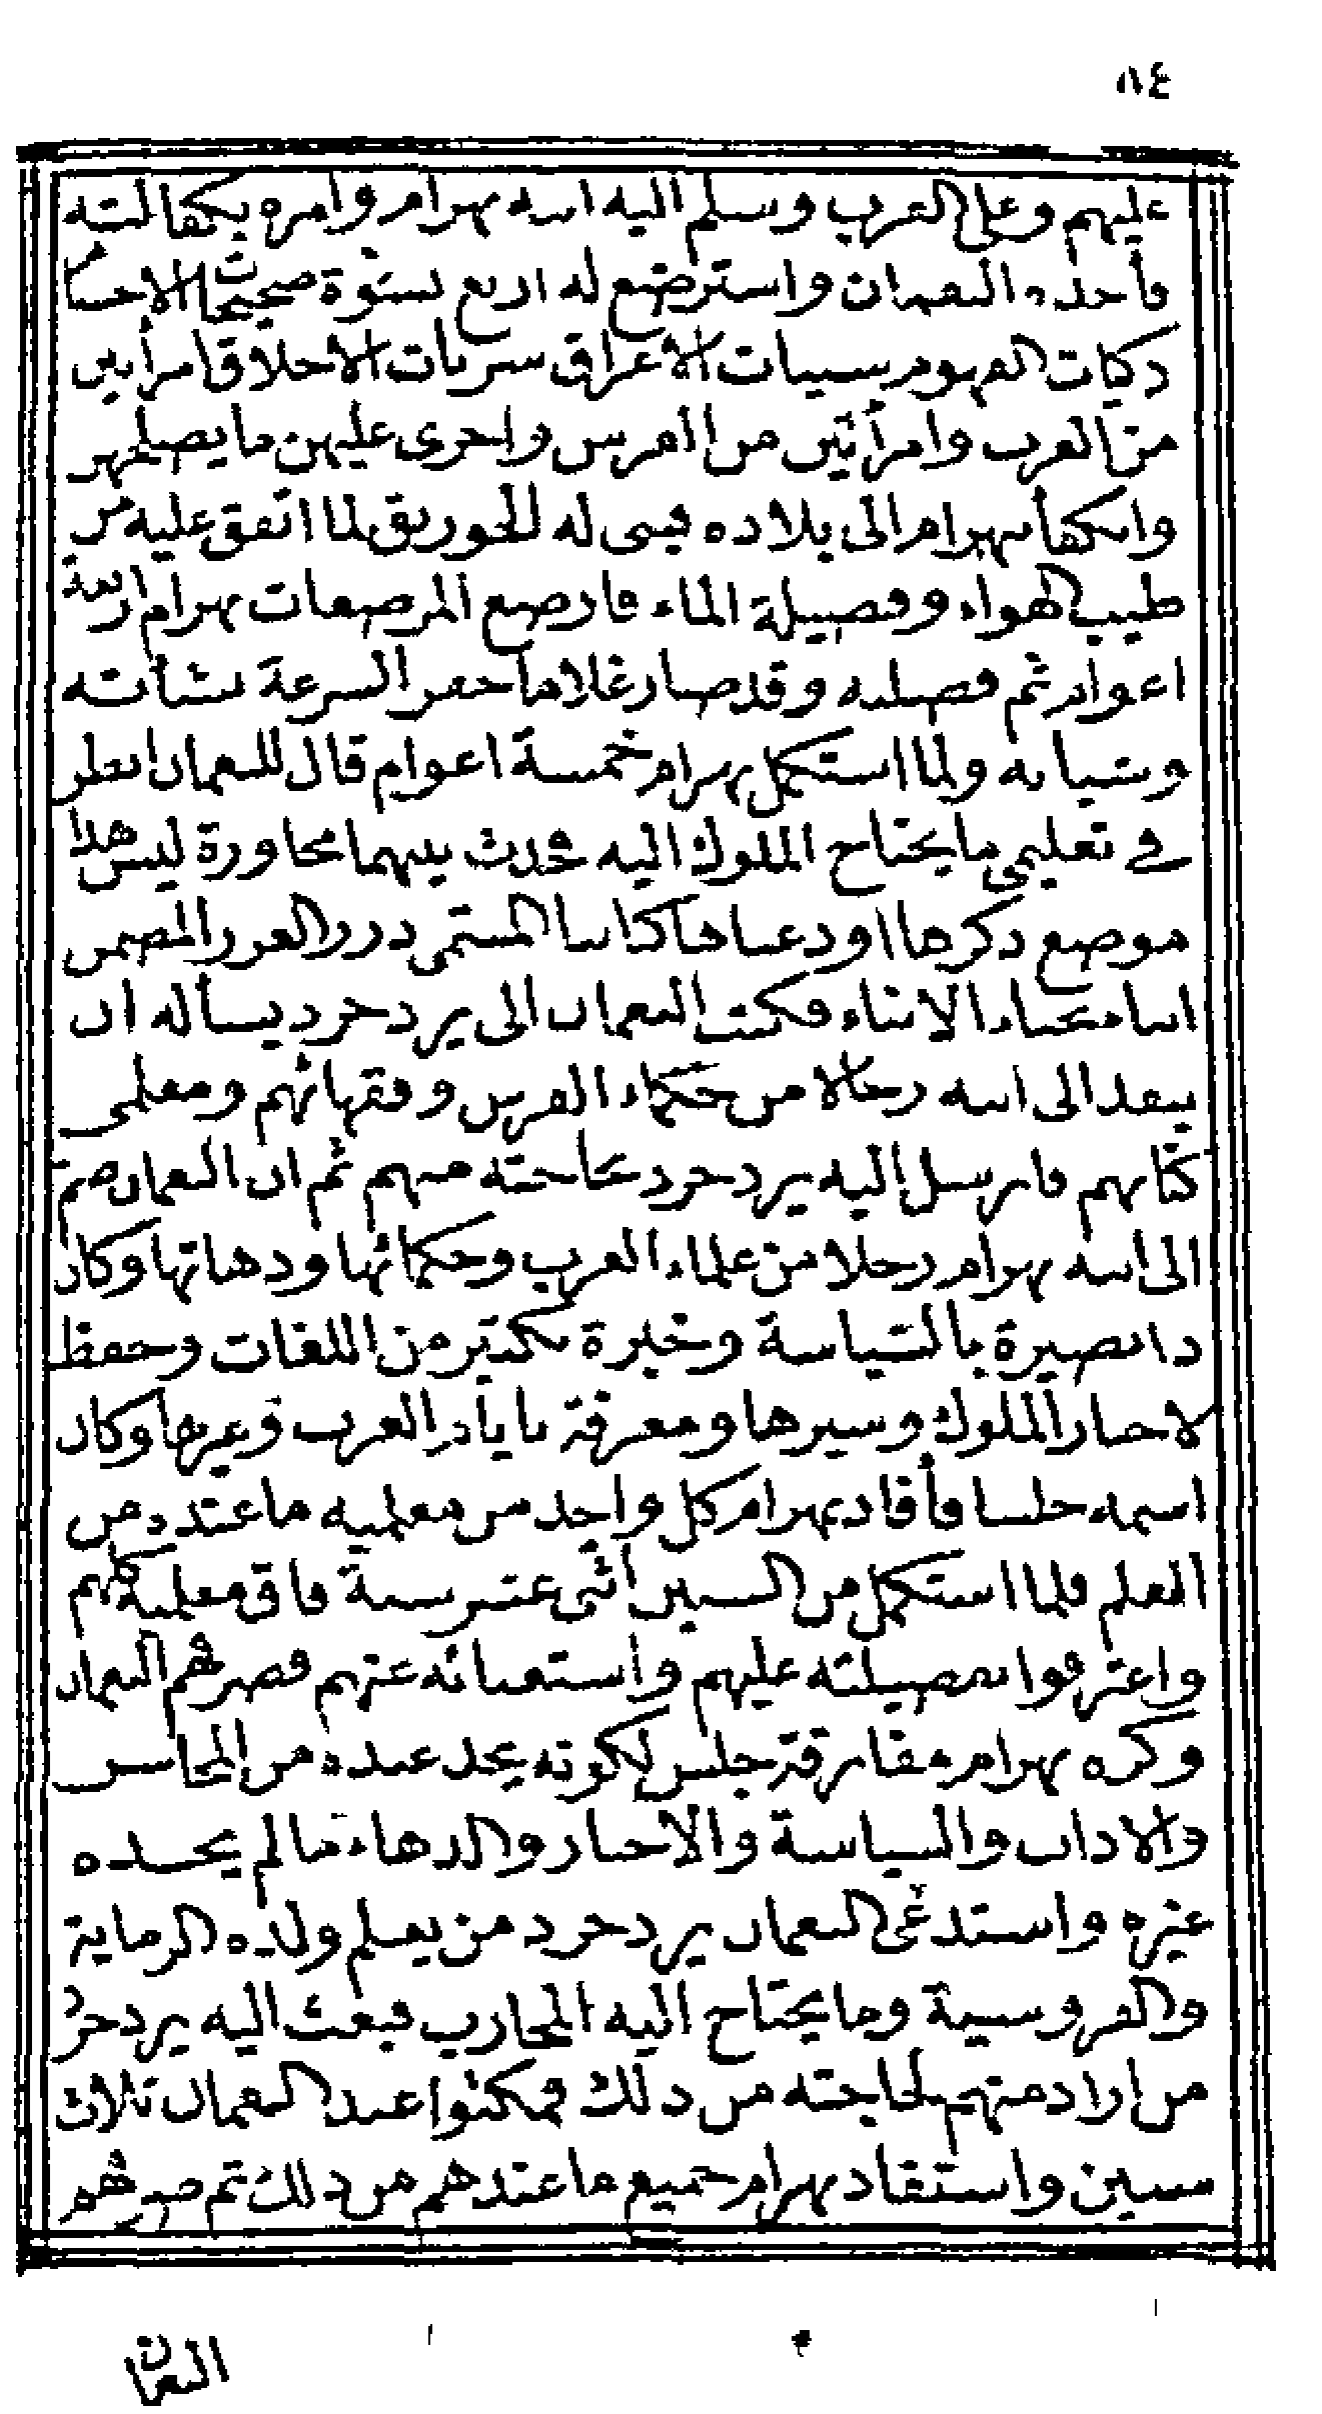 ٨٤
عليهم وعلى العرب وسلم اليه ابنه بهرام وامره بكفالته
فأخذه النعمان واسترضع له اربع نسوة صحيحات الاجسام
ذكيات الفهوم سييات الاعراق سريات الاخلاق امرأتين
من العرب وامرأتين من الفرس واجرى عليهن ما يصلحهن
وانكفأ ببهرام الى بلاده فبنى له الخورنق لما اتفق عليه من
طيب الهواء وفضيلة الماء فارضع المرضعات بهرام اربعة
اعوام ثم فصلنه وقد صار غلاما جفر السرعة نشأته
وشبابه ولما استكمل بهرام خمسة اعوام قال للنعمان انظر
في تعليمى ما يحتاج الملوك اليه فحدث بينهما محاورة ليس هذا
موضع ذكرها اودعناها كتابنا المسمى درر الغرر المضمن
انباء نجباء الابناء فكتب النعمان الى يزدجرد يسأله ان
ينفذ الى ابنه رجالا من حكماء الفرس وفقهائهم ومعلمى
كتابهم فارسل اليه يزدجرد بحاجته منهم ثم ان النعمان ضم
الى ابنه بهرام رجلا من علماء العرب وحكمائها ودهاتها وكان
ذا بصيرة بالسياسة وخبرة بكثير من اللغات وحفظ
لاخبار الملوك وسيرها ومعرفة بايام العرب وغيرها وكان
اسمه حلسا فأفاد بهرام كل واحد من معلميه ما عنده من
العلم فلما استكمل من السنين اثنى عشر سنة فاق معلميه كلهم
واعترفوا بفضيلته عليهم واستغنائه عنهم فصرفهم النعمان
وكره بهرام مفارقة جلس لكونه يجد عنده من المحاسن
والاداب والسياسة والاخبار والدهاء ما لم يجده
غيره واستدعى النعمان يزدجرد من يعلم ولده الرماية
والفروسية وما يحتاج اليه المحارب فبعث اليه يزدجرد
من اراد منهم لحاجته من ذلك فمكثوا عند النعمان ثلاث
سنين واستفاد بهرام جميع ما عندهم من ذلك ثم صرفهم
النعمان